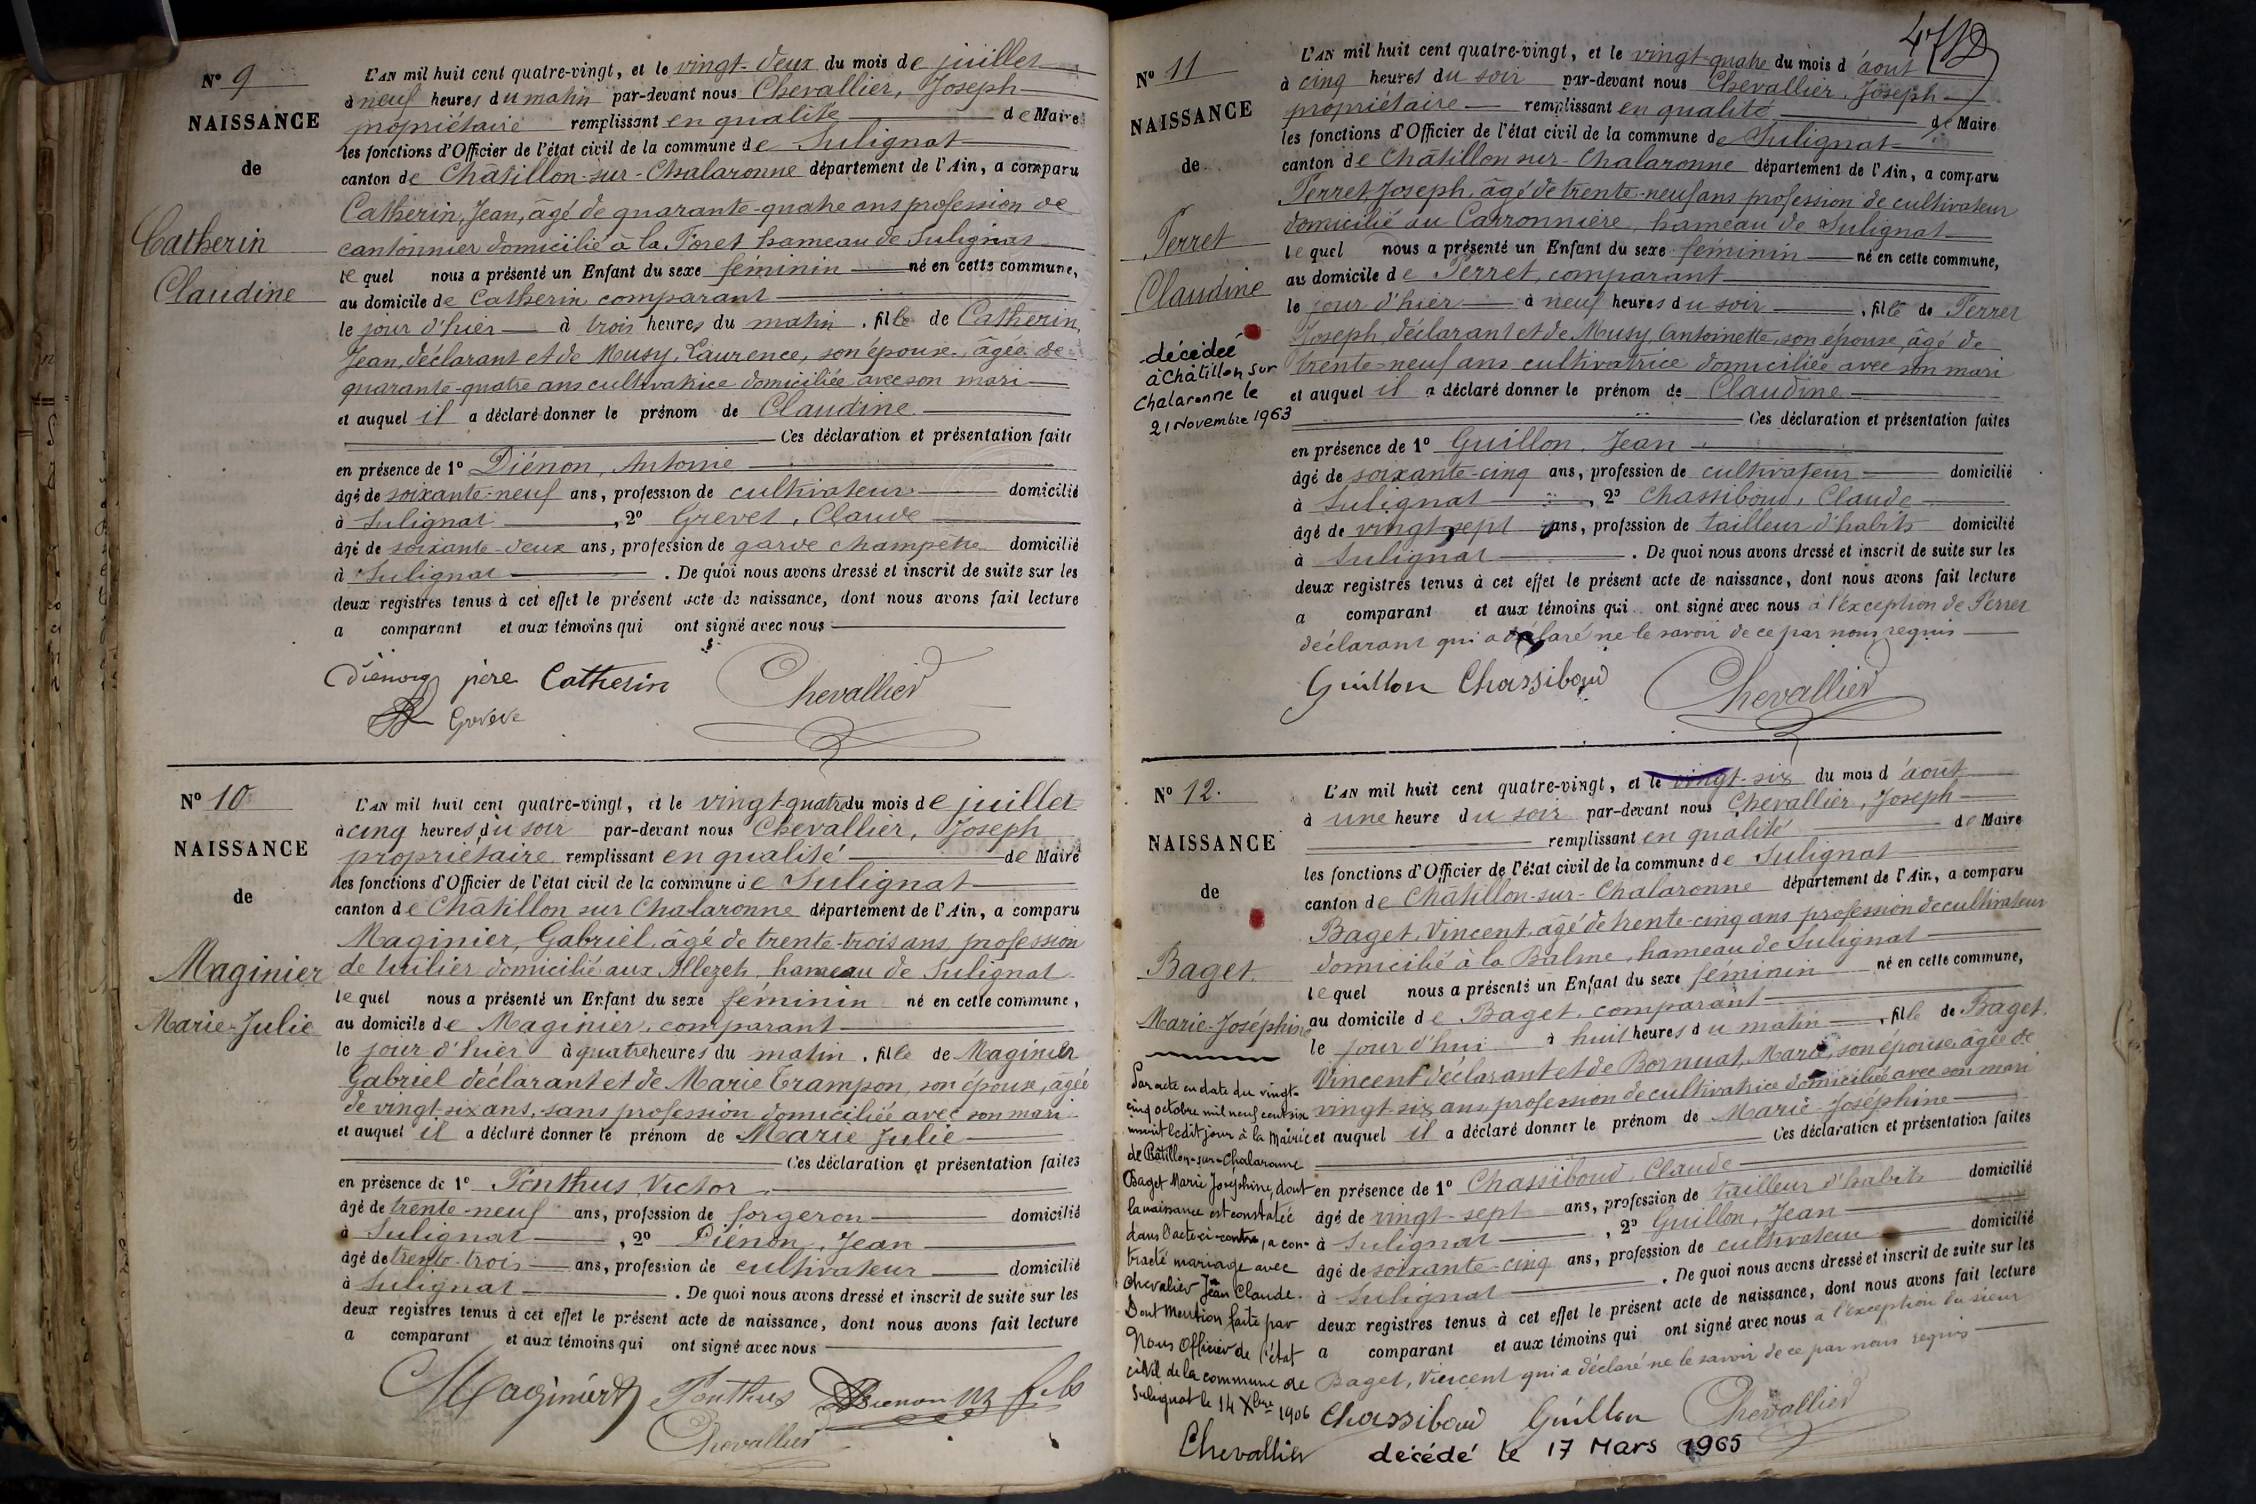 N° 9
NAISSANCE
de
Catherin
Claudine
L'AN mil huit cent quatre-vingt, et le vingt-deux du mois de juillet
à neuf heures du matin par-devant nous Chevallier, Joseph
propriétaire remplissant en qualité de Maire
les fonctions d'Officier de l'état civil de la commune de Sulignat
canton de Châtillon-sur-Chalaronne département de l'Ain, a comparu
Catherin, Jean, âgé de quarante-quatre ans profession de
cantonnier domicilié à la Foret hameau de Sulignat
lequel nous a présenté un Enfant du sexe féminin né en cette commune,
au domicile de Catherin comparant
le jour d'hier à trois heures du matin, fille de Catherin,
Jean, déclarant et de Musy, Laurence, son épouse, âgée de
quarante-quatre ans cultivatrice domiciliée avec son mari
et auquel il a déclaré donner le prénom de Claudine
Ces déclaration et présentation faite
en présence de 1° Diénon, Antoine
âgé de soixante-neuf ans, profession de cultivateur domicilié
à Sulignat, 2° Grevet, Claude
âgé de soixante-deux ans, profession de garde champêtre domicilié
à Sulignat. De quoi nous avons dressé et inscrit de suite sur les
deux registres tenus à cet effet le présent acte de naissance, dont nous avons fait lecture
a comparant et aux témoins qui ont signé avec nous
Diénon père Catherin Chevallier
N° 10
NAISSANCE
de
Maginier
Marie-Julie
L'AN mil huit cent quatre-vingt, et le vingt-quatre du mois de juillet
à cinq heures du soir par-devant nous Chevallier, Joseph
propriétaire remplissant en qualité de Maire
les fonctions d'Officier de l'état civil de la commune de Sulignat
canton de Châtillon sur Chalaronne département de l'Ain, a comparu
Maginier, Gabriel, âgé de trente-trois ans profession
de tuilier domicilié aux hameau de Sulignat
lequel nous a présenté un Enfant du sexe féminin né en cette commune,
au domicile de Maginier, comparant
le jour d'hier à quatre heures du matin, fille de Maginier
Gabriel déclarant et de Marie Trampon, son épouse, âgée
de vingt six ans, sans profession domiciliée avec son mari
et auquel il a déclaré donner le prénom de Marie Julie
Ces déclaration et présentation faites
en présence de 1° Ponthus, Victor
âgé de trente-neuf ans, profession de forgeron domicilié
à Sulignat, 2° Diénon, Jean
âgé de trente-trois ans, profession de cultivateur domicilié
à Sulignat. De quoi nous avons dressé et inscrit de suite sur les
deux registres tenus à cet effet le présent acte de naissance, dont nous avons fait lecture
a comparant et aux témoins qui ont signé avec nous
Maginier Ponthus Dienon fils
Chevallier
N° 11
NAISSANCE
de
Perret
Claudine
décédée
à Châtillon sur
Chalaronne le
21 Novembre 1963
L'AN mil huit cent quatre-vingt, et le vingt-quatre du mois d'août
à cinq heures du soir par-devant nous Chevallier, Joseph
propriétaire remplissant en qualité de Maire
les fonctions d'Officier de l'état civil de la commune de Sulignat
canton de Châtillon sur-Chalaronne département de l'Ain, a comparu
Perret, Joseph, âgé de trente-neuf ans profession de cultivateur
domicilié au Carronnière, hameau de Sulignat
lequel nous a présenté un Enfant du sexe féminin né en cette commune,
au domicile de Perret, comparant
le jour d'hier à neuf heures du soir, fille de Perret
Joseph, déclarant et de Musy Antoinette, son épouse, âgé de
trente-neuf ans cultivatrice domiciliée avec son mari
et auquel il a déclaré donner le prénom de Claudine
Ces déclaration et présentation faites
en présence de 1° Guillon, Jean
âgé de soixante-cinq ans, profession de cultivateur domicilié
à Sulignat, 2° Chassiboud, Claude
âgé de vingt-sept ans, profession de tailleur d'habits domicilié
à Sulignat. De quoi nous avons dressé et inscrit de suite sur les
deux registres tenus à cet effet le présent acte de naissance, dont nous avons fait lecture
a comparant et aux témoins qui ont signé avec nous à l'exception de Perret
déclarant qui a déclaré ne le savoir de ce par nous requis
Guillon Chassiboud Chevallier
N° 12.
NAISSANCE
de
Baget
Marie-Joséphine
Par acte en date du vingt-
cinq octobre mil neuf cent six
inscrit ledit jour à la Mairie
de Châtillon-sur-Chalaronne
Baget Marie Joséphine, dont
la naissance est constatée
dans l'acte ci-contre, a con-
tracté mariage avec
Chevalier Jean Claude.
Dont Mention faite par
Nous Officier de l'état
civil de la commune de
Sulignat le 14 Xbre 1906
Chevallier
L'AN mil huit cent quatre-vingt, et le vingt-six du mois d'août
à une heure du soir par-devant nous Chevallier, Joseph
remplissant en qualité de Maire
les fonctions d'Officier de l'état civil de la commune de Sulignat
canton de Châtillon-sur-Chalaronne département de l'Ain, a comparu
Baget, Vincent, âgé de trente-cinq ans profession de cultivateur
domicilié à la Balme, hameau de Sulignat
lequel nous a présenté un Enfant du sexe féminin né en cette commune,
au domicile de Baget, comparant
le jour d'hui à huit heures du matin, fille de Baget,
Vincent déclarant et de Bornuat, Marie, son épouse, âgée de
vingt-six ans profession de cultivatrice domiciliée avec son mari
et auquel il a déclaré donner le prénom de Marie-Joséphine
Ces déclaration et présentation faites
en présence de 1° Chassiboud, Claude
âgé de vingt-sept ans, profession de tailleur d'habits domicilié
à Sulignat, 2° Guillon, Jean
âgé de soixante-cinq ans, profession de cultivateur domicilié
à Sulignat. De quoi nous avons dressé et inscrit de suite sur les
deux registres tenus à cet effet le présent acte de naissance, dont nous avons fait lecture
a comparant et aux témoins qui ont signé avec nous à l'exception du sieur
Baget, Vincent qui a déclaré ne le savoir de ce par nous requis
Chassiboud Guillon Chevallier
décédé le 17 Mars 1965